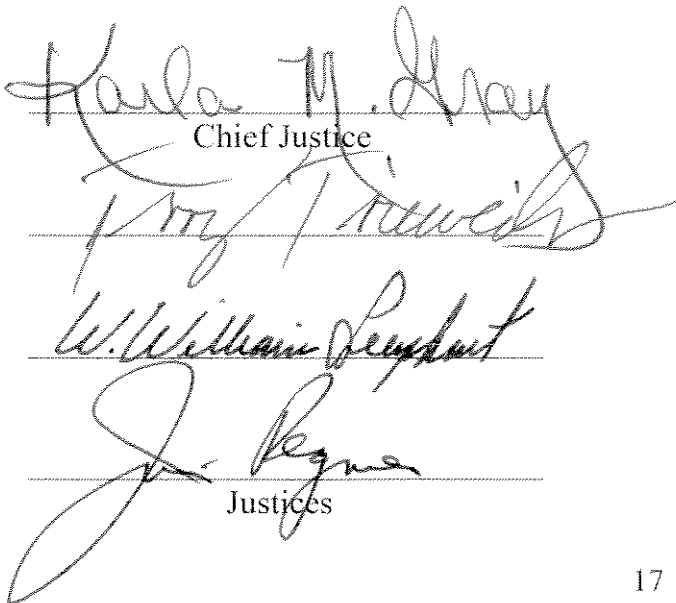 Karla M. Gray
Chief Justice
Terry Trieweiler
W. William Leaphart
Jim Regnier
Justices
17